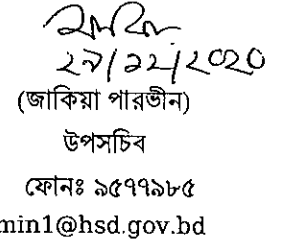 ২৯/১২/২০২০
(জাকিয়া পারভীন)
উপসচিব
ফোনঃ ৯৫৭৭৯৮৫
min1@hsd.gov.bd